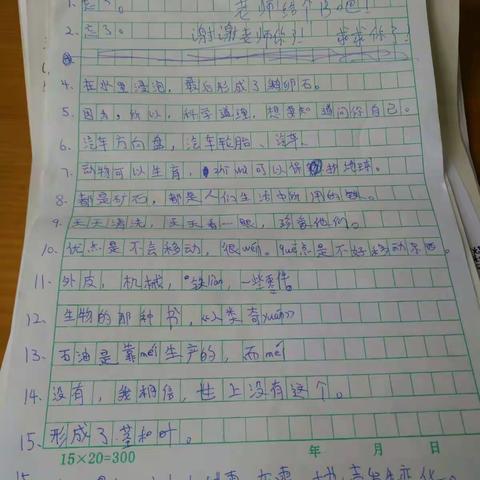 1. 忘了。 老师给个B吧！
2. 忘了。 谢谢老师你了！ 求求你了！
4. 在水里浸泡，最后形成了鹅卵石。
5. 因为，所以，科学道理，想要知道问你自己。
6. 汽车方向盘，汽车轮胎、汽车、
7. 动物可以生育，
8. 都是矿石，都是人们生活中所用的
9. 天天清洗，天天看一眼，陪着他们。
10. 优点是不会移动，很wěn。quē点是不好移动东西。
11. 外皮，机械，铁liàn，一些零件
12. 生物的那种书，《人类奇xuàn》
13. 石油是靠méi生产的，而méi
14. 没有，我相信，世上没有这个。
15. 形成了茎和叶。
15×20=300 年 月 日